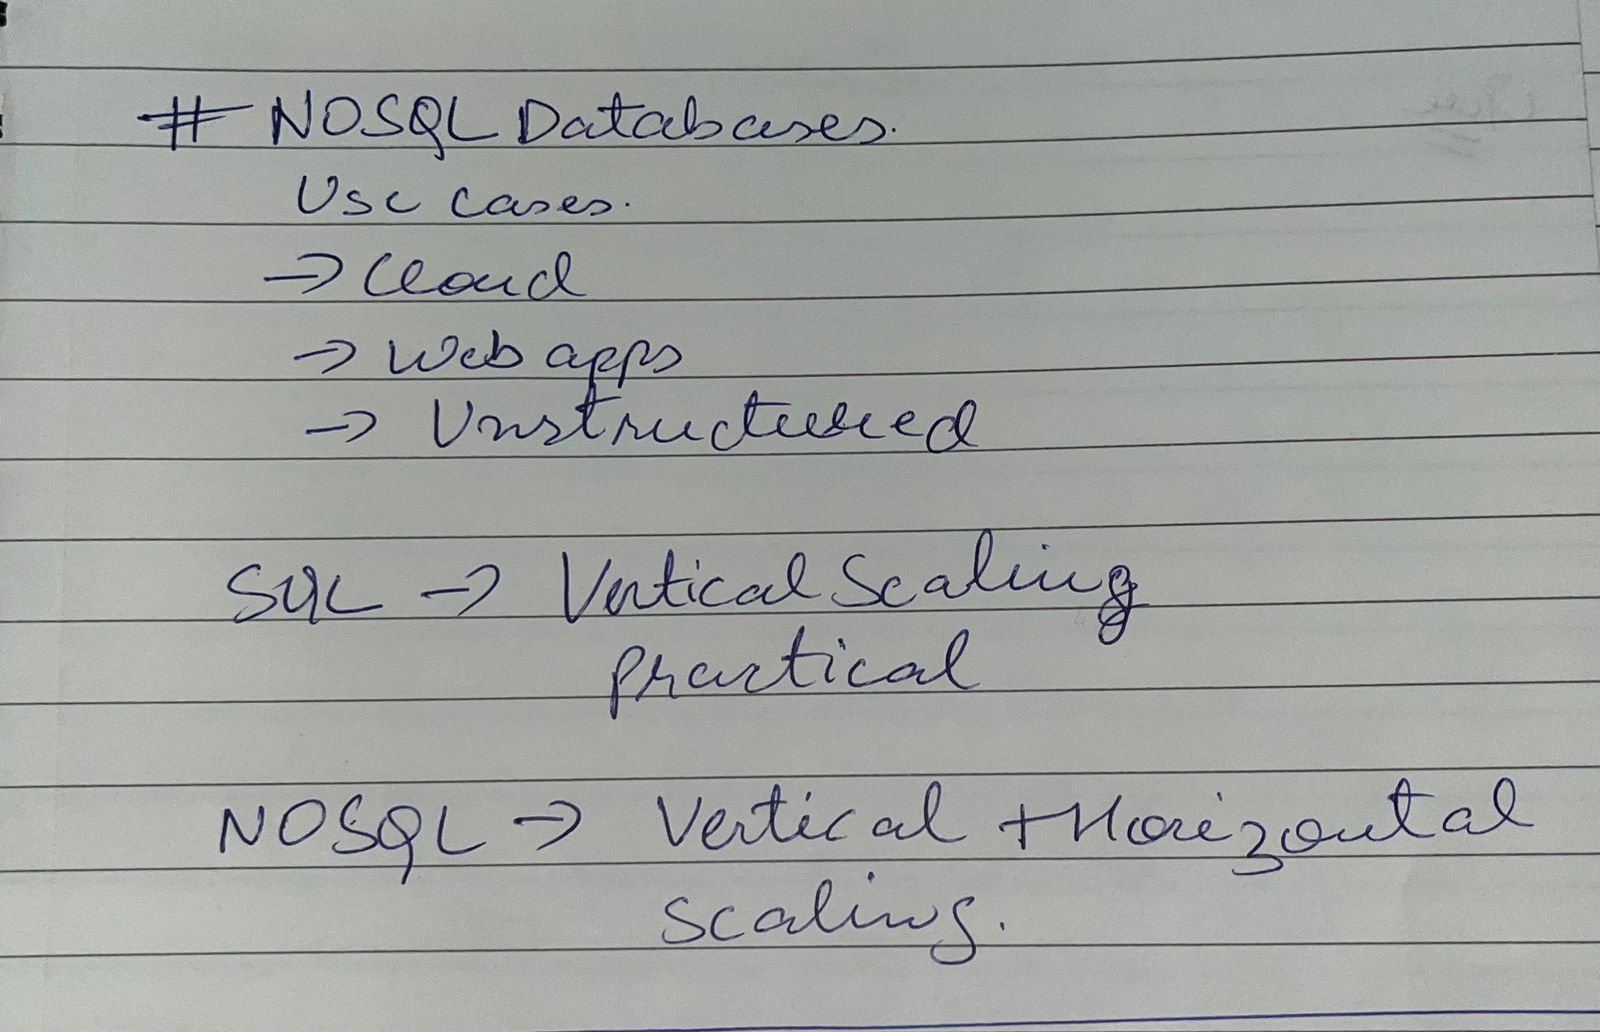 # NOSQL Databases.
Use cases.
→ Cloud
→ Web apps
→ Unstructured
SQL → Vertical Scaling
practical
NOSQL → Vertical + Horizontal
scaling.